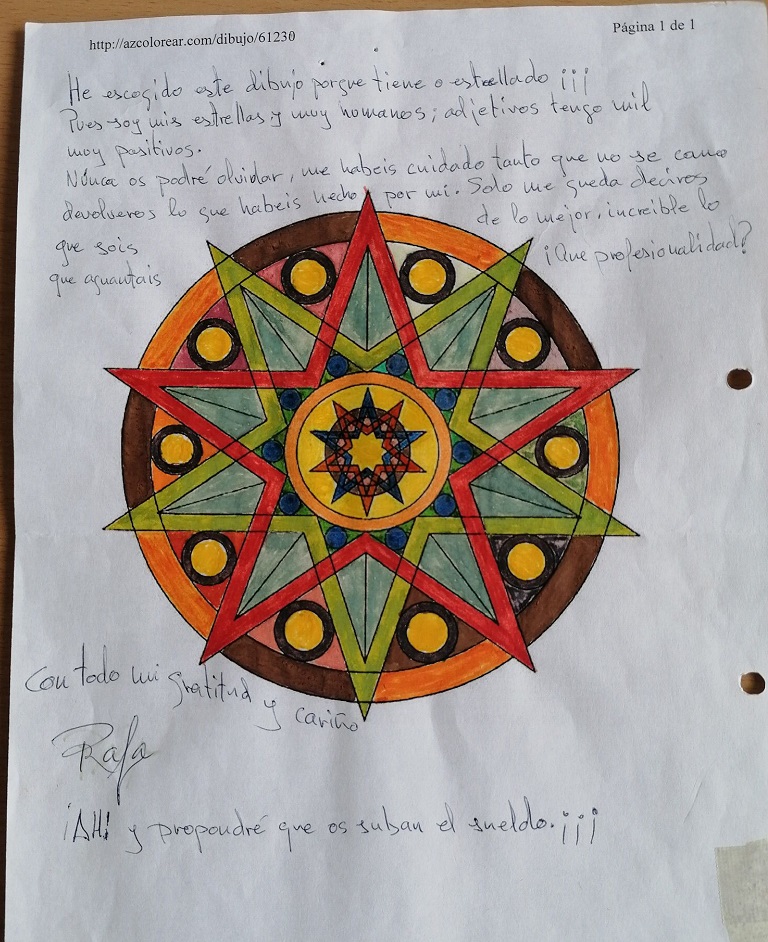 http://azcolorear.com/dibujo/61230
Página 1 de 1
He escogido este dibujo porque tiene o estrellado ¡¡¡
Pues soy mis estrellas y muy humanos; adjetivos tengo mil
muy positivos.
Núnca os podré olvidar, me habeis cuidado tanto que no se como
devolveros lo que habeis hecho por mi. Solo me queda deciros
que sois de lo mejor, increible lo
que aguantais ¡Que profesionalidad?
Con todo mi gratitud y cariño
Rafa
¡AH! y propondré que os suban el sueldo. ¡¡¡